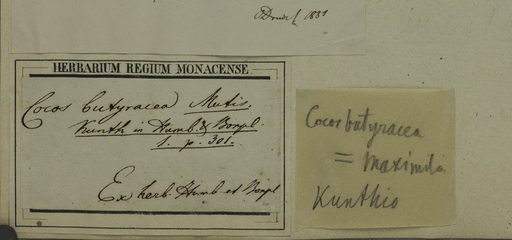 Drude f 1881
HERBARIUM REGIUM MONACENSE
Cocos butyracea Mutis.
Kunth in Humb. & Bonpl.
1. p. 301.
Ex herb Humb et Bonpl
Cocos butyracea
= Maximil.
Kunthio